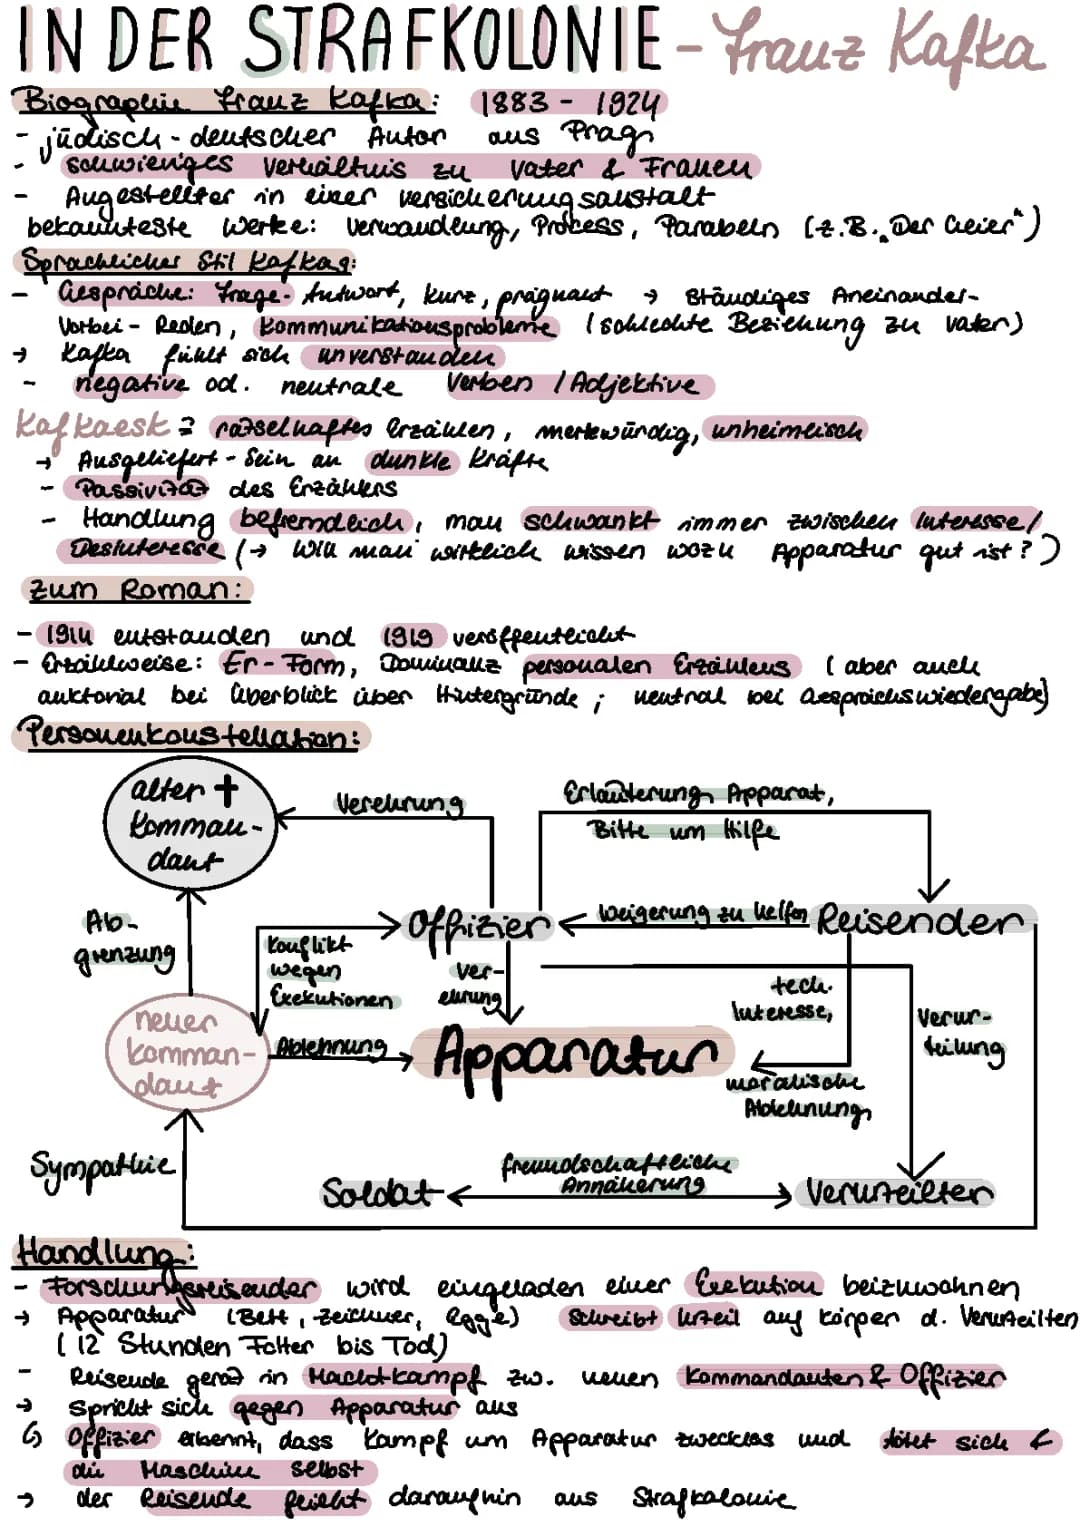 IN DER STRAFKOLONIE - Franz Kafka
Biographie Franz Kafka: 1883 - 1924
- jüdisch-deutscher Autor aus Prag
- schwieriges Verhältnis zu Vater & Frauen
- Angestellter in einer Versicherungsanstalt
bekannteste Werke: Verwandlung, Process, Parabeln (z.B. „Der Geier")
Sprachlicher Stil Kafkas:
- Gespräche: Frage-Antwort, kurz, prägnant → Ständiges Aneinander-
Vorbei-Reden, Kommunikationsprobleme (schlechte Beziehung zu Vater)
→ Kafka fühlt sich unverstanden
- negative od. neutrale Verben / Adjektive
Kafkaesk = rätselhaftes Erzählen, merkwürdig, unheimlich
→ Ausgeliefert-Sein an dunkle Kräfte
- Passivität des Erzählers
- Handlung befremdlich, man schwankt immer zwischen Interesse/
Desinteresse (→ Will man wirklich wissen wozu Apparatur gut ist?)
Zum Roman:
- 1914 entstanden und 1919 veröffentlicht
- Erzählweise: Er-Form, Dominanz personalen Erzählens (aber auch
auktorial bei Überblick über Hintergründe; neutral bei Gesprächswiedergabe)
Personenkonstellation:
alter †
Komman-
dant
Verehrung
Erläuterung Apparat,
Bitte um Hilfe
Ab-
grenzung
Konflikt
wegen
Exekutionen
Offizier
Weigerung zu helfen
Reisender
Ver-
ehrung
tech.
Interesse,
moralische
Ablehnung
Verur-
teilung
neuer
Komman-
dant
Ablehnung
Apparatur
Sympathie
Soldat
freundschaftliche
Annäherung
Verurteilter
Handlung:
- Forschungsreisender wird eingeladen einer Exekution beizuwohnen
→ Apparatur (Bett, Zeichner, Egge) schreibt Urteil auf Körper d. Verurteilten
(12 Stunden Folter bis Tod)
- Reisende gerät in Machtkampf zw. neuen Kommandanten & Offizier
→ Spricht sich gegen Apparatur aus
↳ Offizier erkennt, dass Kampf um Apparatur zwecklos und tötet sich &
die Maschine selbst
→ der Reisende flieht daraufhin aus Strafkolonie